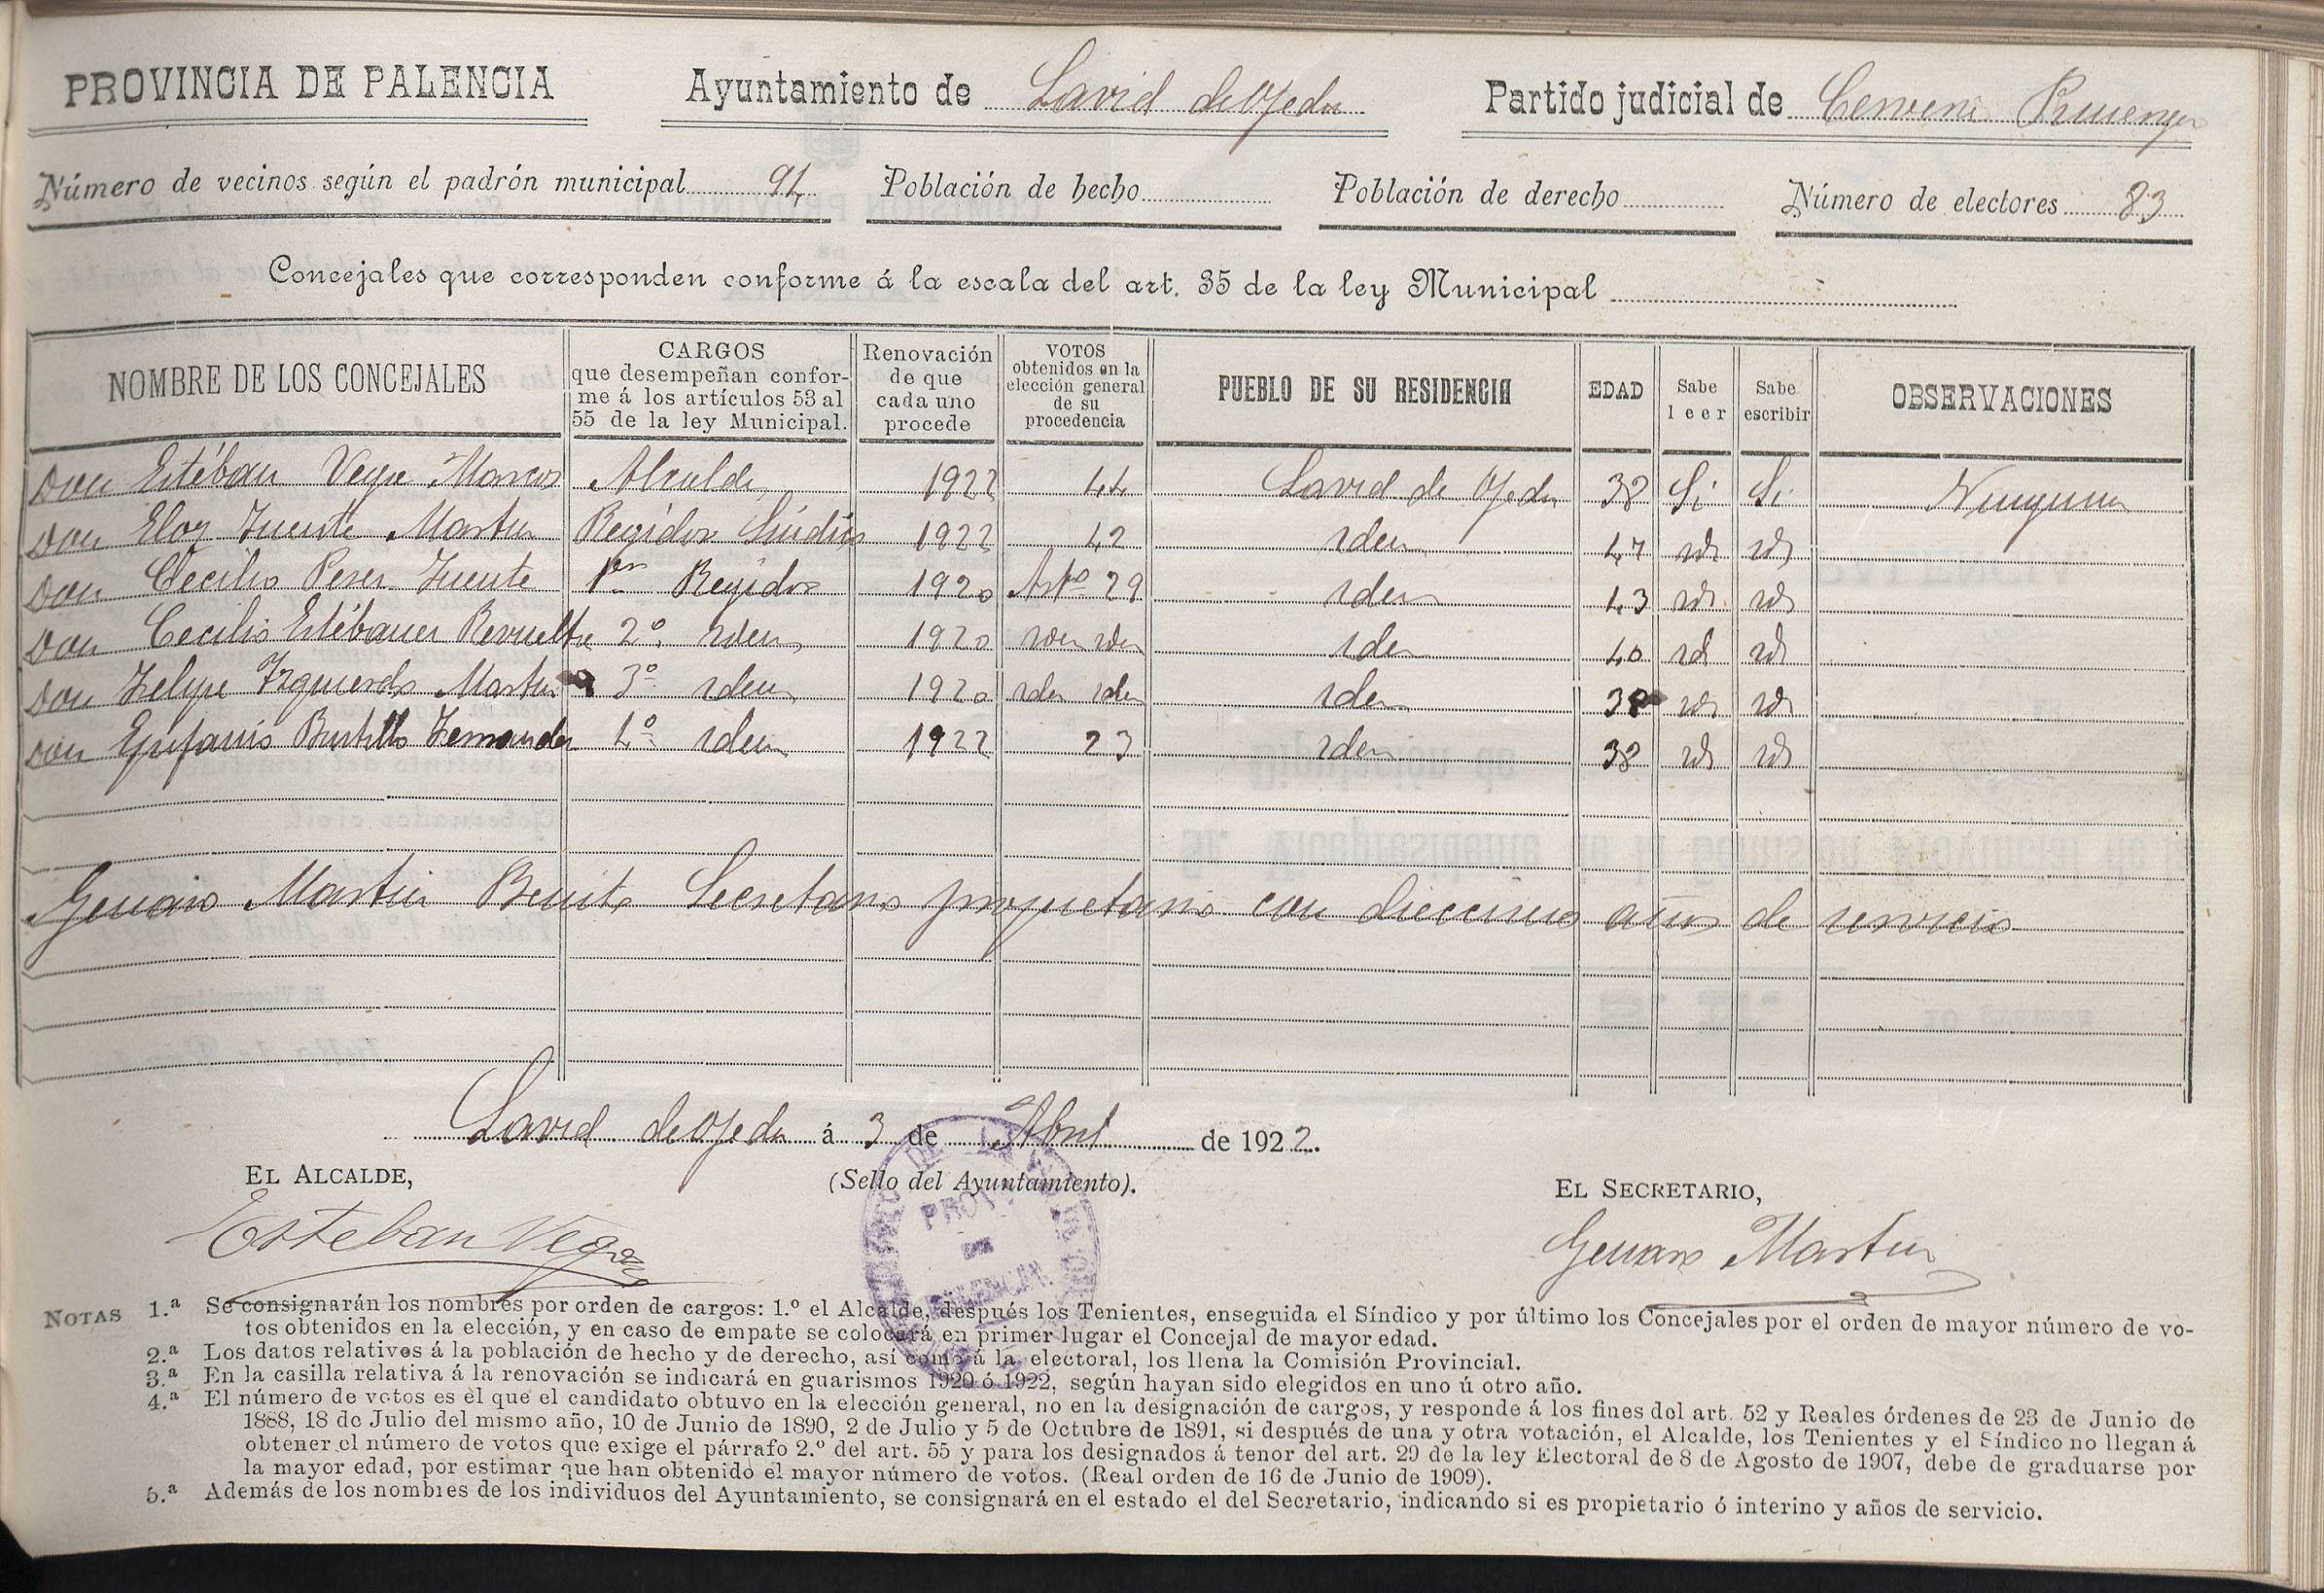 PROVINCIA DE PALENCIA Ayuntamiento de Lavid de Ojeda Partido judicial de Cervera Pisuerga
Número de vecinos según el padrón municipal 94 Población de hecho Población de derecho Número de electores 83
Concejales que corresponden conforme á la escala del art. 35 de la ley Municipal
NOMBRE DE LOS CONCEJALES
CARGOS
que desempeñan confor-
me á los artículos 53 al
55 de la ley Municipal.
Renovación
de que
cada uno
procede
VOTOS
obtenidos en la
elección general
de su
procedencia
PUEBLO DE SU RESIDENCIA
EDAD
Sabe
leer
Sabe
escribir
OBSERVACIONES
Don Estéban Vega Marcos Alcalde 1922 44 Lavid de Ojeda 38 Si Si Ninguna
Don Eloy Fuente Martin Regidor Sindico 1922 42 idem 47 id id
Don Cecilio Perez Fuente 1er Regidor 1920 Artº 29 idem 43 id id
Don Cecilio Estébanez Revuelta 2º idem 1920 idem idem idem 40 id id
Don Felipe Izquierdo Martin 3º idem 1920 idem idem idem 38 id id
Don Epifanio Bustillo Fernandez 4º idem 1922 23 idem 38 id id
Genaro Martin Benito Secretario propietario con diecicinco años de servicio
Lavid de Ojeda á 3 de Abril de 1922.
EL ALCALDE,
(Sello del Ayuntamiento).
EL SECRETARIO,
Esteban Vega
Genaro Martin
PROVINCIA
DE
PALENCIA.
NOTAS 1.ª Se consignarán los nombres por orden de cargos: 1.º el Alcalde, después los Tenientes, enseguida el Síndico y por último los Concejales por el orden de mayor número de vo-
tos obtenidos en la elección, y en caso de empate se colocará en primer lugar el Concejal de mayor edad.
2.ª Los datos relativos á la población de hecho y de derecho, así como á la electoral, los llena la Comisión Provincial.
3.ª En la casilla relativa á la renovación se indicará en guarismos 1920 ó 1922, según hayan sido elegidos en uno ú otro año.
4.ª El número de votos es el que el candidato obtuvo en la elección general, no en la designación de cargos, y responde á los fines del art. 52 y Reales órdenes de 23 de Junio de
1888, 18 de Julio del mismo año, 10 de Junio de 1890, 2 de Julio y 5 de Octubre de 1891, si después de una y otra votación, el Alcalde, los Tenientes y el Síndico no llegan á
obtener el número de votos que exige el párrafo 2.º del art. 55 y para los designados á tenor del art. 29 de la ley Electoral de 8 de Agosto de 1907, debe de graduarse por
la mayor edad, por estimar que han obtenido el mayor número de votos. (Real orden de 16 de Junio de 1909).
5.ª Además de los nombres de los individuos del Ayuntamiento, se consignará en el estado el del Secretario, indicando si es propietario ó interino y años de servicio.